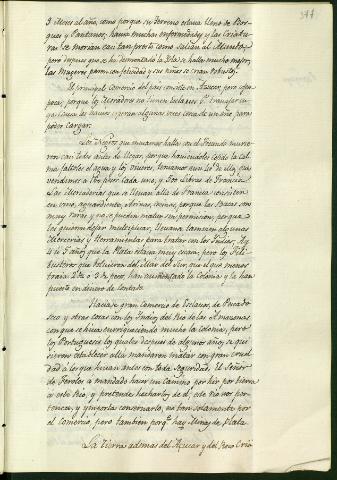 377
3 ó tres al año, como porque su terreno estava lleno de Bos-
ques y Pantanos, havía muchas enfermedades y las Criatu-
ras se morían casi tan presto como salían al Mundo,
pero despues que se ha desmontado la Isla se halla mucho mejor,
las Mugeres paren con felicidad y sus niños se crian robustos.
El principal Comercio del pais consiste en Azucar, pero es
poca, porque los Moradores no tienen
los navios esperan algunas veces cerca de un año para
poder cargar.
Los Negros que
ron casi todos antes de llegar, porque haviendoles cogido la Cal-
ma faltóles el agua y los viveres, teniamos
vendemos a Yos por cada uno, y son libras de Francia.
Las Mercaderias que se llevan alla de Francia consisten
en vino, aguardiente, Arinas, carnes, porque las Bacas son
muy raras y no se pueden matar sin permision, porque
los quieren dejar multiplicar, llevan tambien algunas
Mercerias y Herramientas para tratar con los Indios. Ay
4 ó 5 años que la Plata estava muy rara; pero los Fili-
bustieres que bolvieron del Mar del Sur, que el que menos
traia 2 ó 3 pesos, han aumentado la Colonia y la han
puesto en dinero de contado.
Haciase gran Comercio de Esclavos, de Pescado
seco y otras cosas con los Indios del Rio de las Amazonas
con que se hivan enriqueciendo mucho la colonia, pero
los Portugueses los quales despues de algunos años, se qui-
sieron establecer alla mandaron matar con gran cruel
dad a los que hivan antes con toda seguridad. El Señor
de Feroles a mandado hacer un camino por hir por tierra
a este Rio, y pretende hecharlos de el, este no nos per-
tenece, y ynporta conservarlo, no tan solamente por
el Comercio, pero tambien porq.e hay Minas de Plata.
La tierra ademas del Azucar y del Roco Cria